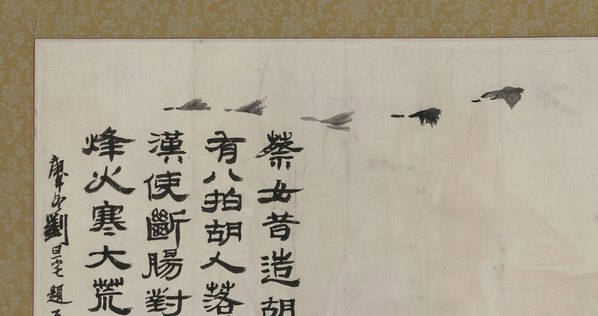 蔡女昔造胡
有八拍胡人落
漢使斷腸對
烽火寒大荒
劉旦宅題